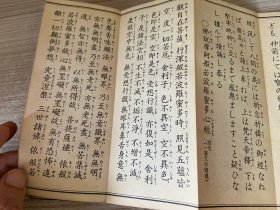 も神前にては
祈念祈禱の御經な
ば上は梵天帝釋下は
し謹んで讀誦し奉る
佛說摩訶般若波羅蜜多心經
觀自在菩薩行深般若波羅蜜多時照見五蘊皆
空度一切苦厄舍利子色不異空空不異色
色即是空空即是色受想行識亦復如是舍利
子是諸法空相不生不滅不垢不淨不增不減
是故空中無色無受想行識無眼耳鼻舌身意無
色聲香味觸法無眼界乃至無意識界無無明
亦無無明盡乃至無老死亦無老死盡無苦集
滅道無智亦無得以無所得故菩提薩埵依般若
波羅蜜多故心無罣礙無罣礙故無有恐怖遠
離一切顛倒夢想究竟涅槃三世諸佛依般若